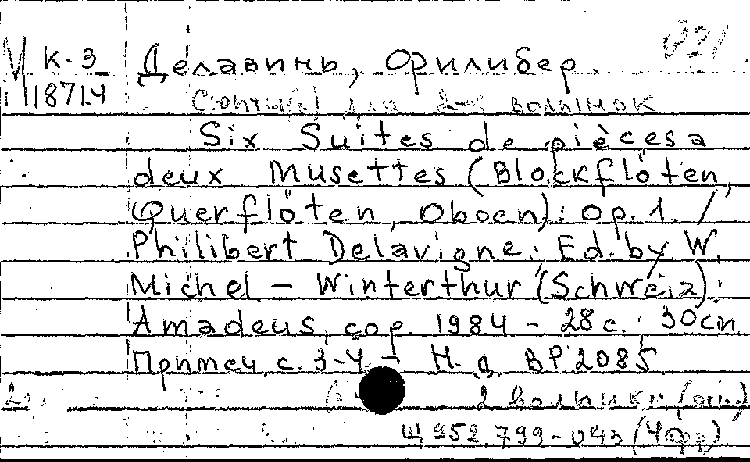 К-3 Делавинь, Филибер
11871.4 Сюиты для 2-х волынок
Six Suites de pièces a
deux Musettes (Blockflöten,
Querflöten, Oboen): Op.1. /
Philibert Delavigne; Ed. by W.
Michel - Winterthur (Schweiz):
Amadeus, cop. 1984 - 28 с.; 30 cm.
Примеч. с. 3-4 - Н. д. BP 2085
2 волынки
Щ 952.799-043 (4Фр)